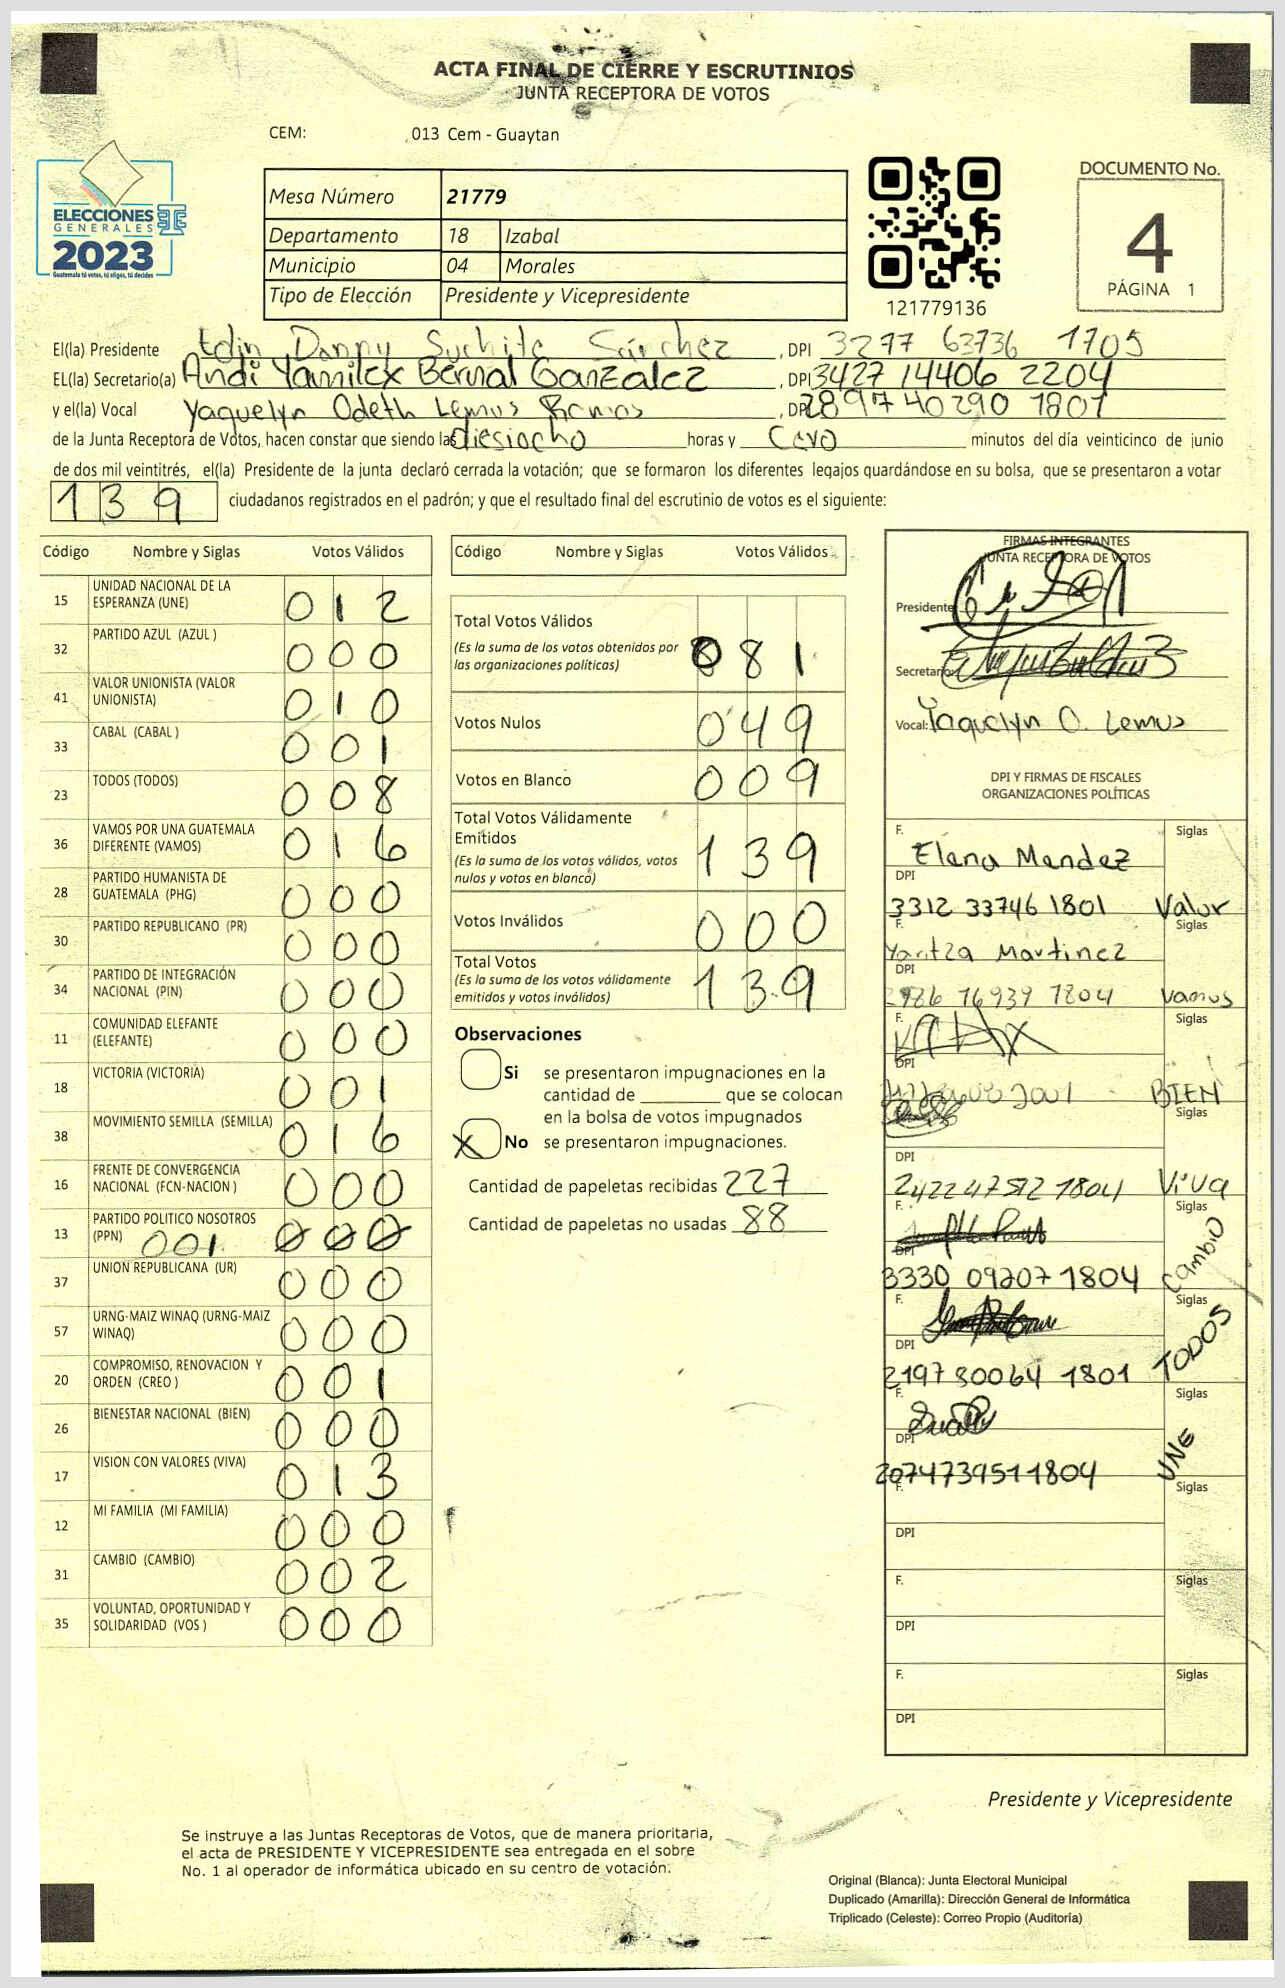 ACTA FINAL DE CIERRE Y ESCRUTINIOS
JUNTA RECEPTORA DE VOTOS
CEM: 013 Cem - Guaytan
ELECCIONES
GENERALES
2023
Guatemala tú votas, tú eliges, tú decides
Mesa Número 21779
Departamento 18 Izabal
Municipio 04 Morales
Tipo de Elección Presidente y Vicepresidente
121779136
DOCUMENTO No.
4
PÁGINA 1
El(la) Presidente Edin Danny Suchite Sánchez, DPI 3277 63736 1705
EL(la) Secretario(a) Andi Yamilex Bernal Gonzalez, DPI 3427 14406 2204
y el(la) Vocal Yaquelyn Odeth Lemus Ramos, DPI 2897 40290 1801
de la Junta Receptora de Votos, hacen constar que siendo las diesiocho horas y Cero minutos del día veinticinco de junio
de dos mil veintitrés, el(la) Presidente de la junta declaró cerrada la votación; que se formaron los diferentes legajos guardándose en su bolsa, que se presentaron a votar
139 ciudadanos registrados en el padrón; y que el resultado final del escrutinio de votos es el siguiente:
Código Nombre y Siglas Votos Válidos
15 UNIDAD NACIONAL DE LA ESPERANZA (UNE) 012
32 PARTIDO AZUL (AZUL ) 000
41 VALOR UNIONISTA (VALOR UNIONISTA) 010
33 CABAL (CABAL ) 001
23 TODOS (TODOS) 008
36 VAMOS POR UNA GUATEMALA DIFERENTE (VAMOS) 016
28 PARTIDO HUMANISTA DE GUATEMALA (PHG) 000
30 PARTIDO REPUBLICANO (PR) 000
34 PARTIDO DE INTEGRACIÓN NACIONAL (PIN) 000
11 COMUNIDAD ELEFANTE (ELEFANTE) 000
18 VICTORIA (VICTORIA) 001
38 MOVIMIENTO SEMILLA (SEMILLA) 016
16 FRENTE DE CONVERGENCIA NACIONAL (FCN-NACION ) 000
13 PARTIDO POLITICO NOSOTROS (PPN) 001 000
37 UNION REPUBLICANA (UR) 000
57 URNG-MAIZ WINAQ (URNG-MAIZ WINAQ) 000
20 COMPROMISO, RENOVACION Y ORDEN (CREO ) 001
26 BIENESTAR NACIONAL (BIEN) 000
17 VISION CON VALORES (VIVA) 013
12 MI FAMILIA (MI FAMILIA) 000
31 CAMBIO (CAMBIO) 002
35 VOLUNTAD, OPORTUNIDAD Y SOLIDARIDAD (VOS ) 000
Código Nombre y Siglas Votos Válidos
Total Votos Válidos
(Es la suma de los votos obtenidos por las organizaciones políticas) 081
Votos Nulos 049
Votos en Blanco 009
Total Votos Válidamente Emitidos
(Es la suma de los votos válidos, votos nulos y votos en blanco) 139
Votos Inválidos 000
Total Votos
(Es la suma de los votos válidamente emitidos y votos inválidos) 139
Observaciones
Si se presentaron impugnaciones en la
cantidad de ________ que se colocan
en la bolsa de votos impugnados
X No se presentaron impugnaciones.
Cantidad de papeletas recibidas 227
Cantidad de papeletas no usadas 88
FIRMAS INTEGRANTES
JUNTA RECEPTORA DE VOTOS
Presidente
Secretario
Vocal: Yaquelyn O. Lemus
DPI Y FIRMAS DE FISCALES
ORGANIZACIONES POLÍTICAS
F. Elena Mendez Siglas
DPI 3312 33746 1801 Valor
F. Yaritza Martinez Siglas
DPI 16939 1804 Vamos
F. Siglas
DPI 2001 BIEN
Siglas
DPI 2422 47512 1804 Viva
F. Siglas
DPI 3330 09207 1804 Cambio
F. Siglas
DPI 2197 80064 1801 TODOS
F. Siglas
DPI 2074739511804 UNE
F. Siglas
DPI
F. Siglas
DPI
F. Siglas
DPI
Presidente y Vicepresidente
Se instruye a las Juntas Receptoras de Votos, que de manera prioritaria,
el acta de PRESIDENTE Y VICEPRESIDENTE sea entregada en el sobre
No. 1 al operador de informática ubicado en su centro de votación.
Original (Blanca): Junta Electoral Municipal
Duplicado (Amarilla): Dirección General de Informática
Triplicado (Celeste): Correo Propio (Auditoría)